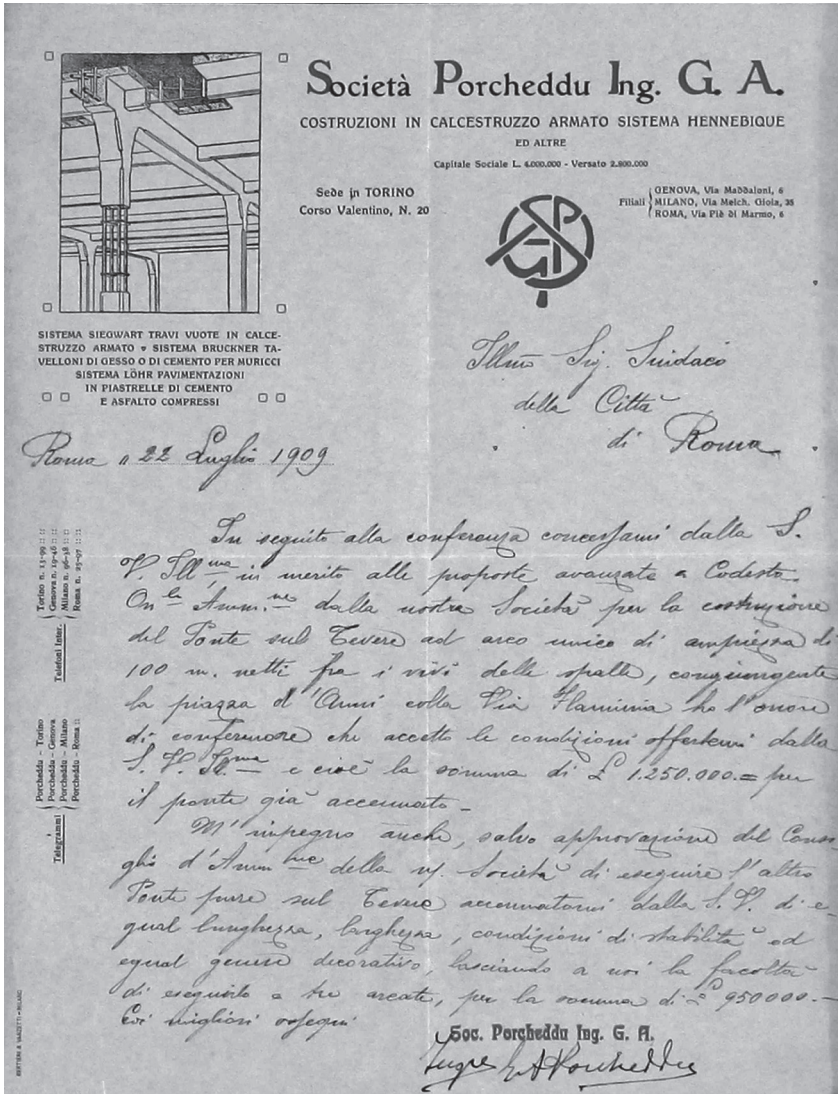 Società Porcheddu Ing. G. A.
COSTRUZIONI IN CALCESTRUZZO ARMATO SISTEMA HENNEBIQUE
ED ALTRE
Capitale Sociale L. 4.000.000 - Versato 2.800.000
Sede in TORINO
Corso Valentino, N. 20
Filiali
GENOVA, Via Maddaloni, 6
MILANO, Via Melch. Gioia, 35
ROMA, Via Piè di Marmo, 6
SISTEMA SIEGWART TRAVI VUOTE IN CALCE-
STRUZZO ARMATO SISTEMA BRUCKNER TA-
VELLONI DI GESSO O DI CEMENTO PER MURICCI
SISTEMA LÖHR PAVIMENTAZIONI
IN PIASTRELLE DI CEMENTO
E ASFALTO COMPRESSI
Illmo Sig. Sindaco
della Città
di Roma
Roma, 22 Luglio 1909
Telefoni Inter.
Torino n. 13-99
Genova n. 19-46
Milano n. 96-38
Roma n. 25-97
Telegrammi
Porcheddu - Torino
Porcheddu - Genova
Porcheddu - Milano
Porcheddu - Roma
In seguito alla conferenza concessami dalla S.
V. Ill.ma, in merito alle proposte avanzate a Codesta
On.le Amm.ne dalla nostra Società per la costruzione
del Ponte sul Tevere ad arco unico di ampiezza di
100 m. netti fra i vivi delle spalle, congiungente
la piazza d'Armi colla Via Flaminia ho l'onore
di confermare che accetto le condizioni offertemi dalla
S. V. Ill.ma e cioè la somma di £ 1.250.000.= per
il ponte già accennato -
M'impegno anche, salvo approvazione del Consi
glio d'Amm.ne della n/. Società di eseguire l'altro
Ponte pure sul Tevere accennatomi dalla S. V. di e
gual lunghezza, larghezza, condizioni di stabilità ed
egual genere decorativo, lasciando a noi la facoltà
di eseguirlo a tre arcate, per la somma di £ 950000.-
Coi migliori ossequi
Soc. Porcheddu Ing. G. A.
Ingre G A Porcheddu
BERTIERI & VANZETTI - MILANO